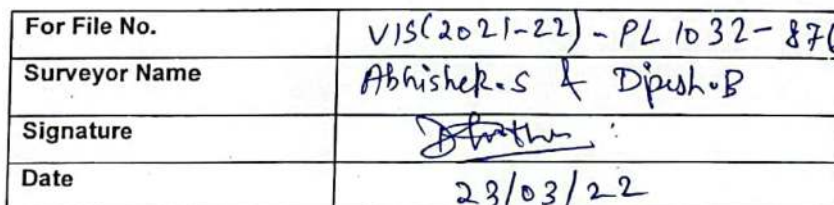 For File No. VIS(2021-22) - PL 1032 - 876
Surveyor Name Abhishek.S & Dipesh.B
Signature
Date 23/03/22